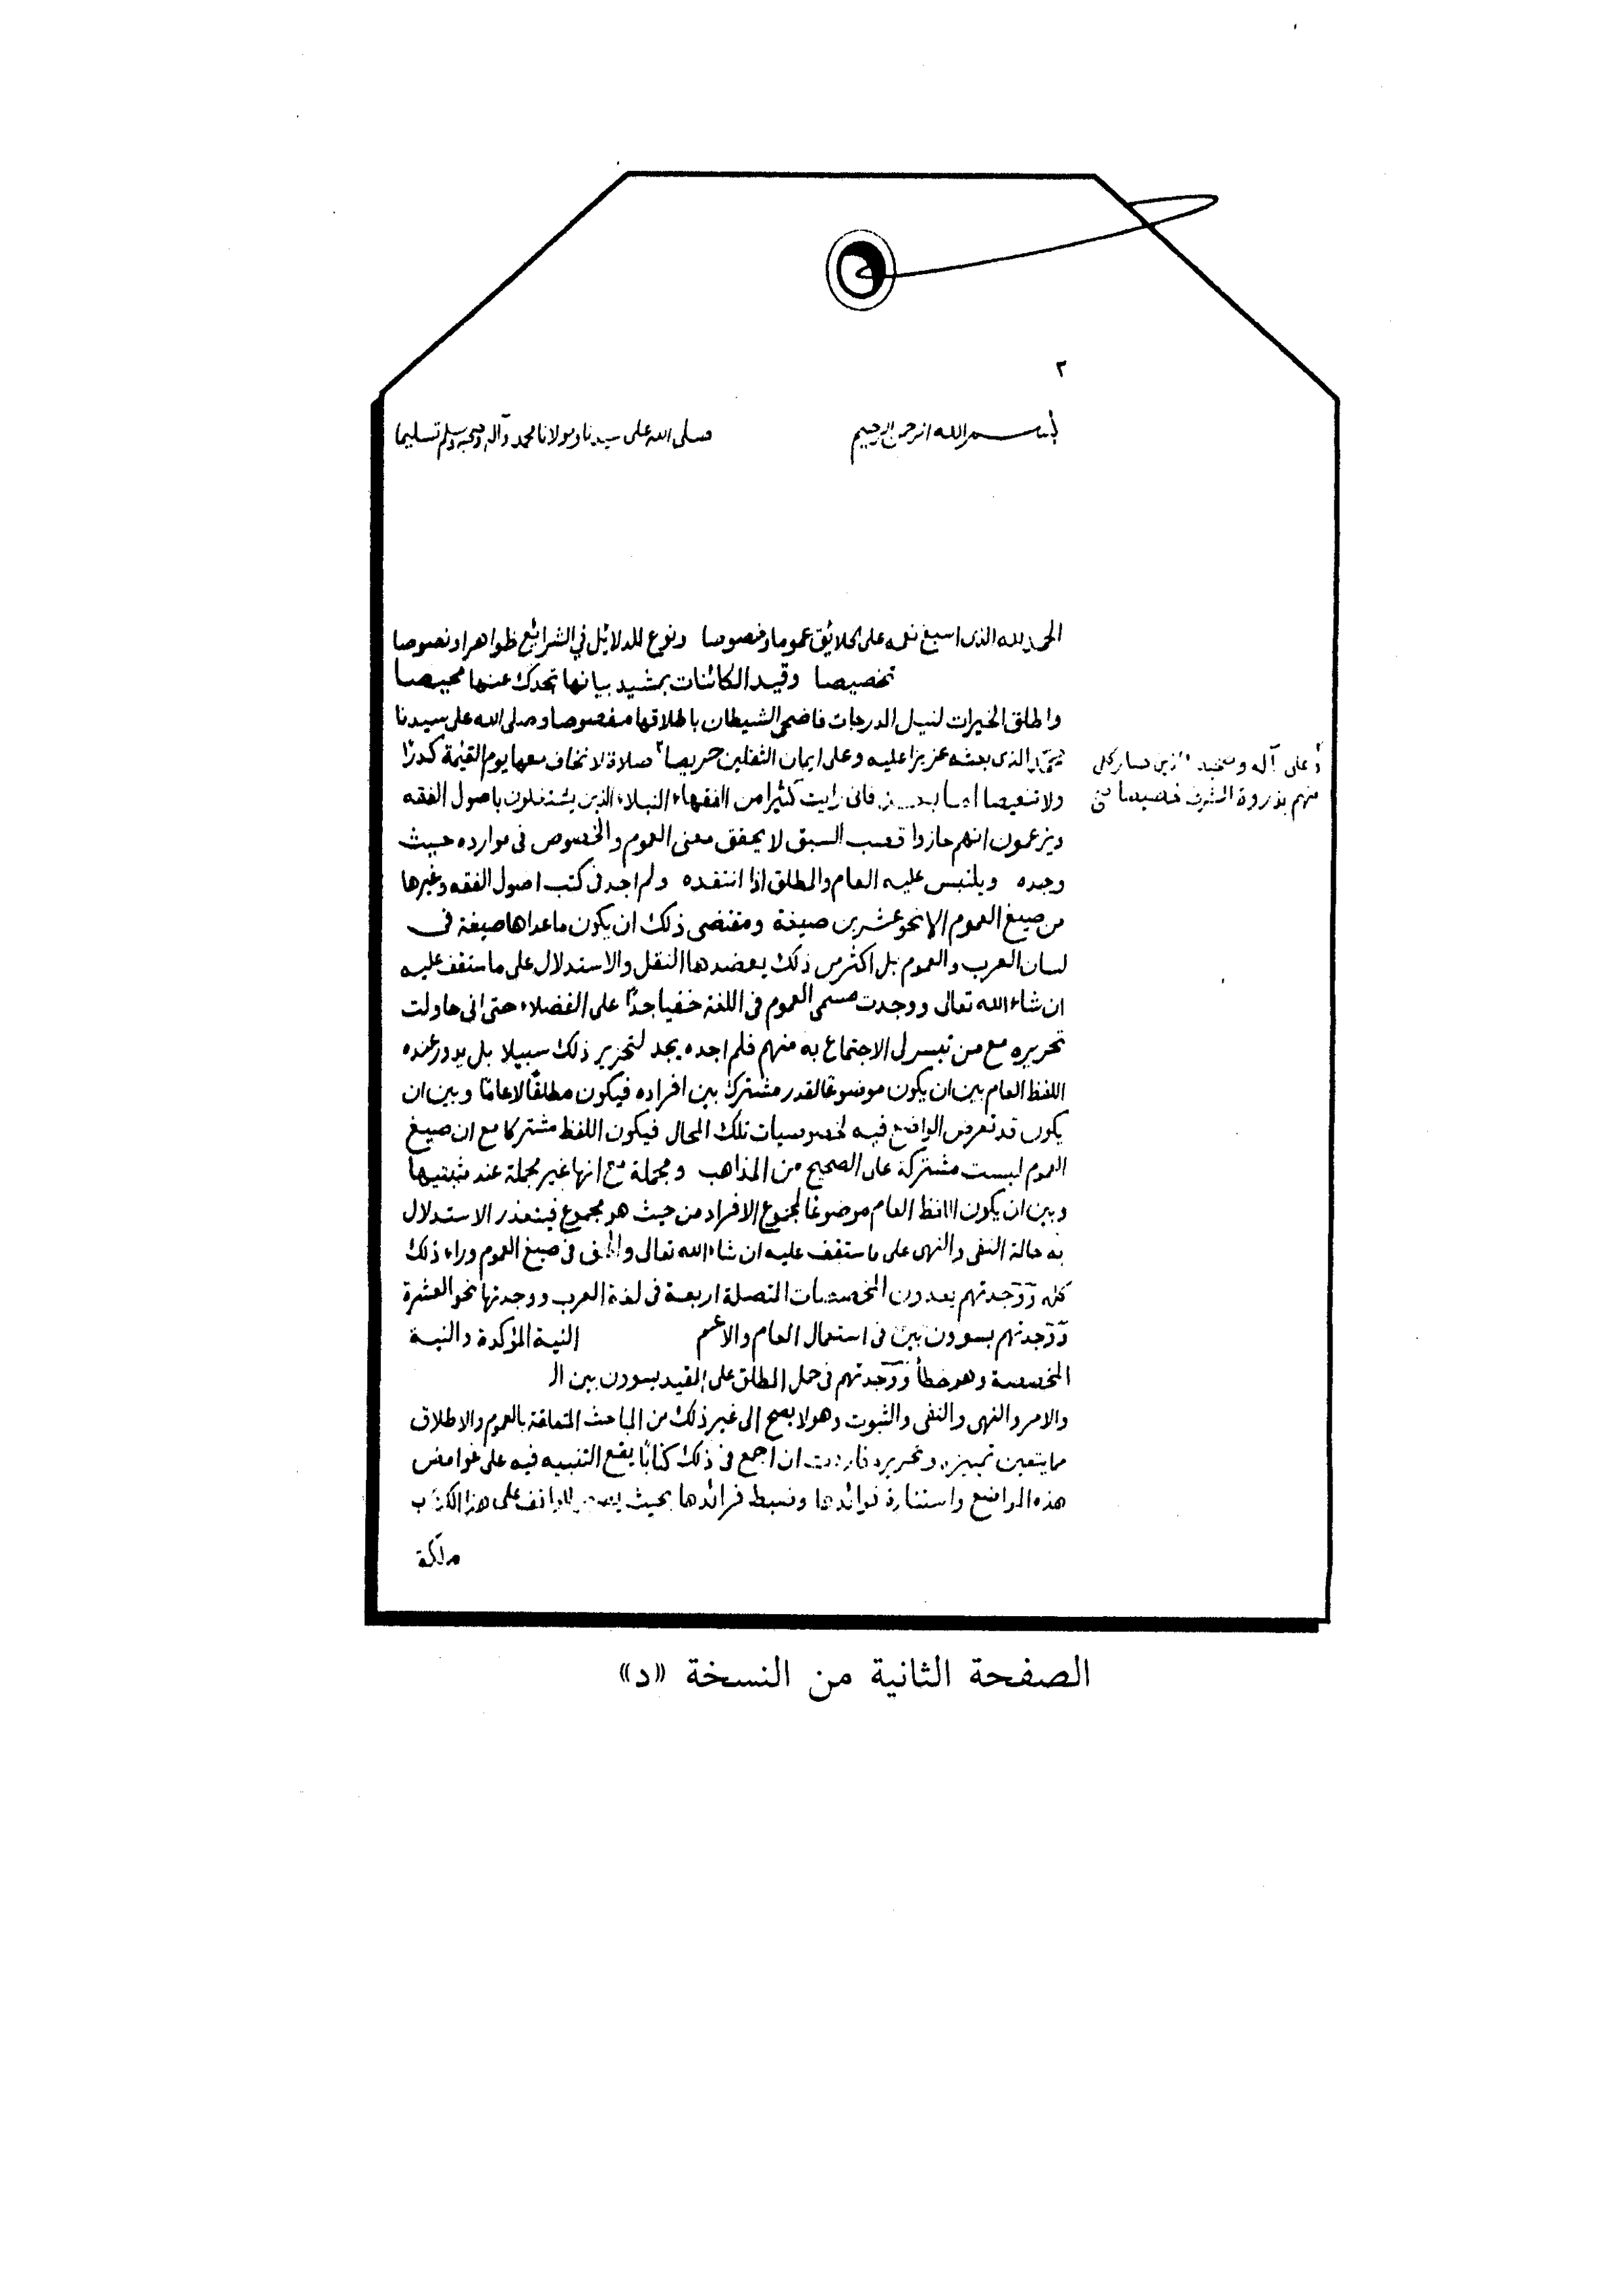 ٢
بسم الله الرحمن الرحيم صلى الله على سيدنا ومولانا محمد وآله وصحبه وسلم تسليما
الحمد لله الذى اسبغ نعمه على الخلائق عموما وخصوصا ونوع للدلائل في الشرائع ظواهرا ونصوصا
تخصيصا وقيد الكائنات بمشيد بيانها تجدك عنها محيصا
واطلق الخيرات لنيل الدرجات فاضحى الشيطان باطلاقها مغصوصا وصلى الله على سيدنا
محمد الذى بعثه عزيزا عليه وعلى ايمان الثقلين حريصا ٢ صلاة لا نخاف معها يوم القيٰمة كدرًا
وعلى آله وصحبه الذين صار كل
منهم بذروة الشرف خصيصا صح
ولا تنغيصا اما بعد فانى رايت كثيرا من الفقهاء النبلاء الذين يشتغلون باصول الفقه
ويزعمون انهم حازوا قصب السبق لا يحقق معنى العموم والخصوص فى موارده حيث
وجده ويلتبس عليه العام والمطلق اذا انتقده ولم اجد فى كتب اصول الفقه وغيرها
من صيغ العموم الا نحو عشرين صيغة ومقتضى ذلك ان يكون ما عداها صيغة فى
لسان العرب والعموم بل اكثر من ذلك يعضدها النقل والاستدلال على ما ستقف عليه
ان شاء الله تعالى ووجدت مسمى العموم فى اللغة خفيا جدًا على الفضلاء حتى انى حاولت
تحريره مع من تيسر لى الاجتماع به منهم فلم اجده يجد لتحرير ذلك سبيلا بل يدور عنده
اللفظ العام بين ان يكون موضوعًا لقدر مشترك بين افراده فيكون مطلقًا لا عامًا وبين ان
يكون قد تعرض الواضع فيه لخصوصيات تلك المحال فيكون اللفظ مشتركا مع ان صيغ
العموم ليست مشتركة على الصحيح من المذاهب ومجملة مع انها غير مجملة عند مثبتيها
وبين ان يكون اللفظ العام موضوعًا لمجموع الافراد من حيث هو مجموع فيتعذر الاستدلال
به حالة النفى والنهى على ما ستقف عليه ان شاء الله تعالى والحق فى صيغ العموم وراء ذلك
كله ووجدتهم يعددون المخصصات المتصلة اربعة فى لغة العرب ووجدتها نحو العشرة
ووجدتهم يسوون بين فى استعمال العام والاعم النية المؤكدة والنية
المخصصة وهو خطأ ووجدتهم فى حمل المطلق على المقيد يسوون بين ال
والامر والنهى والنفى والثبوت وهو لا يصح الى غير ذلك من المباحث المتعلقة بالعموم والاطلاق
مما يتعين تمييزه وتحريره فاردت ان اجمع فى ذلك كتابًا يقع التنبيه فيه على غوامض
هذه المواضع واستنارة فوائدها وضبط فرائدها بحيث للواقف على هذا الكتاب
ملكة
الصفحة الثانية من النسخة «د»